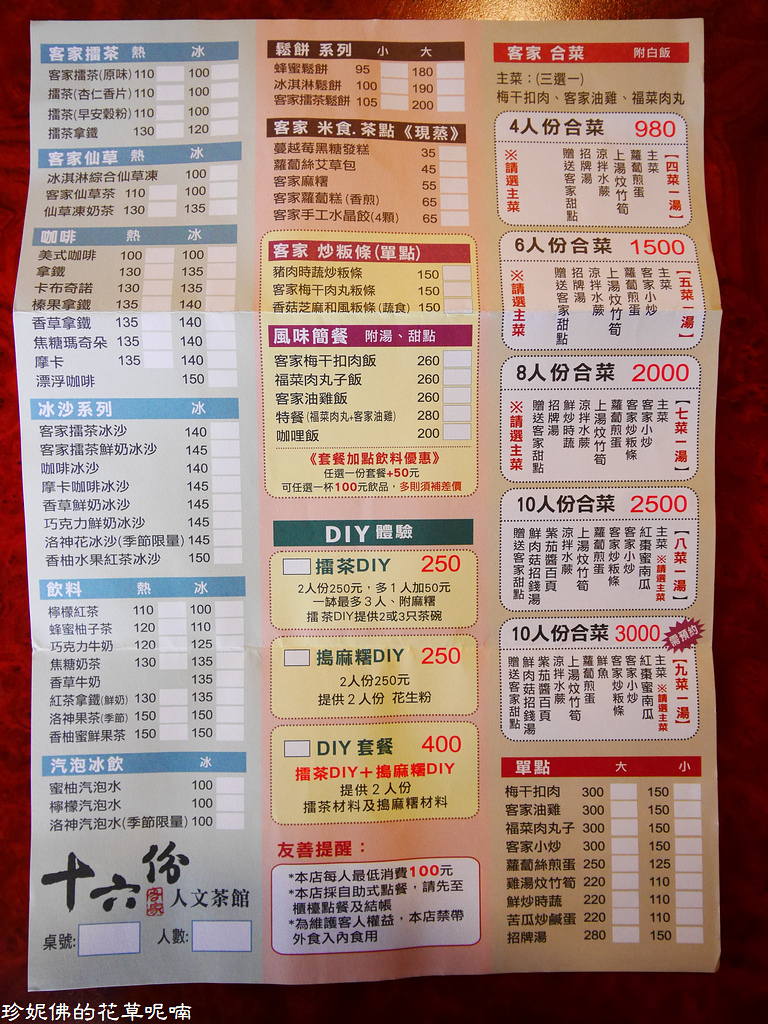 客家擂茶 熱 冰
客家擂茶(原味) 110 100
擂茶(杏仁香片) 110 100
擂茶(早安穀粉) 110 100
擂茶拿鐵 130 120
客家仙草 熱 冰
冰淇淋綜合仙草凍 100
客家仙草茶 110 100
仙草凍奶茶 130 135
咖啡 熱 冰
美式咖啡 100 100
拿鐵 130 135
卡布奇諾 130 135
榛果拿鐵 135 140
香草拿鐵 135 140
焦糖瑪奇朵 135 140
摩卡 135 140
漂浮咖啡 150
冰沙系列 冰
客家擂茶冰沙 140
客家擂茶鮮奶冰沙 145
咖啡冰沙 140
摩卡咖啡冰沙 145
香草鮮奶冰沙 145
巧克力鮮奶冰沙 145
洛神花冰沙(季節限量) 145
香柚水果紅茶冰沙 150
飲料 熱 冰
檸檬紅茶 110 100
蜂蜜柚子茶 120 110
巧克力牛奶 120 125
焦糖奶茶 130 135
香草牛奶 135
紅茶拿鐵(鮮奶) 130 135
洛神果茶(季節) 150 150
香柚蜜鮮果茶 150 150
汽泡冰飲 冰
蜜柚汽泡水 100
檸檬汽泡水 100
洛神汽泡水(季節限量) 100
十六份
客家
人文茶館
桌號: 人數:
鬆餅 系列 小 大
蜂蜜鬆餅 95 180
冰淇淋鬆餅 100 190
客家擂茶鬆餅 105 200
客家 米食.茶點《現蒸》
蔓越莓黑糖發糕 35
蘿蔔絲艾草包 45
客家麻糬 55
客家蘿蔔糕(香煎) 65
客家手工水晶餃(4顆) 65
客家 炒粄條(單點)
豬肉時蔬炒粄條 150
客家梅干肉丸粄條 150
香菇芝麻和風粄條(蔬食) 150
風味簡餐 附湯、甜點
客家梅干扣肉飯 260
福菜肉丸子飯 260
客家油雞飯 260
特餐(福菜肉丸+客家油雞) 280
咖哩飯 200
《套餐加點飲料優惠》
任選一份套餐+50元
可任選一杯100元飲品，多則須補差價
DIY 體驗
擂茶DIY 250
2人份250元，多1人加50元
一缽最多3人、附麻糬
擂茶DIY提供2或3只茶碗
搗麻糬DIY 250
2人份250元
提供2人份 花生粉
DIY 套餐 400
擂茶DIY＋搗麻糬DIY
提供2人份
擂茶材料及搗麻糬材料
友善提醒：
*本店每人最低消費100元
*本店採自助式點餐，請先至
櫃檯點餐及結帳
*為維護客人權益，本店禁帶
外食入內食用
客家 合菜 附白飯
主菜：(三選一)
梅干扣肉、客家油雞、福菜肉丸
4人份合菜 980
【四菜一湯】
主菜
蘿蔔煎蛋
上湯炆竹筍
涼拌水蕨
招牌湯
贈送客家甜點
※請選主菜
6人份合菜 1500
【五菜一湯】
主菜
客家小炒
蘿蔔煎蛋
上湯炆竹筍
涼拌水蕨
招牌湯
贈送客家甜點
※請選主菜
8人份合菜 2000
【七菜一湯】
主菜
客家小炒
客家炒粄條
蘿蔔煎蛋
上湯炆竹筍
涼拌水蕨
鮮炒時蔬
招牌湯
贈送客家甜點
※請選主菜
10人份合菜 2500
【八菜一湯】
主菜 ※請選主菜
紅棗蜜南瓜
客家小炒
客家炒粄條
蘿蔔煎蛋
上湯炆竹筍
涼拌水蕨
紫茄醬百頁
鮮肉菇招錢湯
贈送客家甜點
10人份合菜 3000 需預約
【九菜一湯】
主菜 ※請選主菜
紅棗蜜南瓜
客家小炒
客家炒粄條
鮮魚
蘿蔔煎蛋
上湯炆竹筍
涼拌水蕨
紫茄醬百頁
鮮肉菇招錢湯
贈送客家甜點
單點 大 小
梅干扣肉 300 150
客家油雞 300 150
福菜肉丸子 300 150
客家小炒 300 150
蘿蔔絲煎蛋 250 125
雞湯炆竹筍 220 110
鮮炒時蔬 220 110
苦瓜炒鹹蛋 220 110
招牌湯 280 150
珍妮佛的花草呢喃